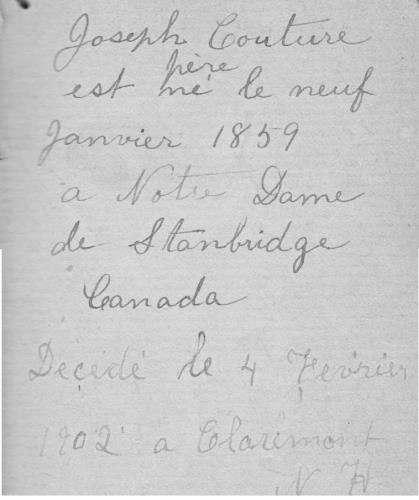 Joseph Couture
père
est né le neuf
Janvier 1859
a Notre Dame
de Stanbridge
Canada
Décédé le 4 Fevrier
1902 a Claremont
N H